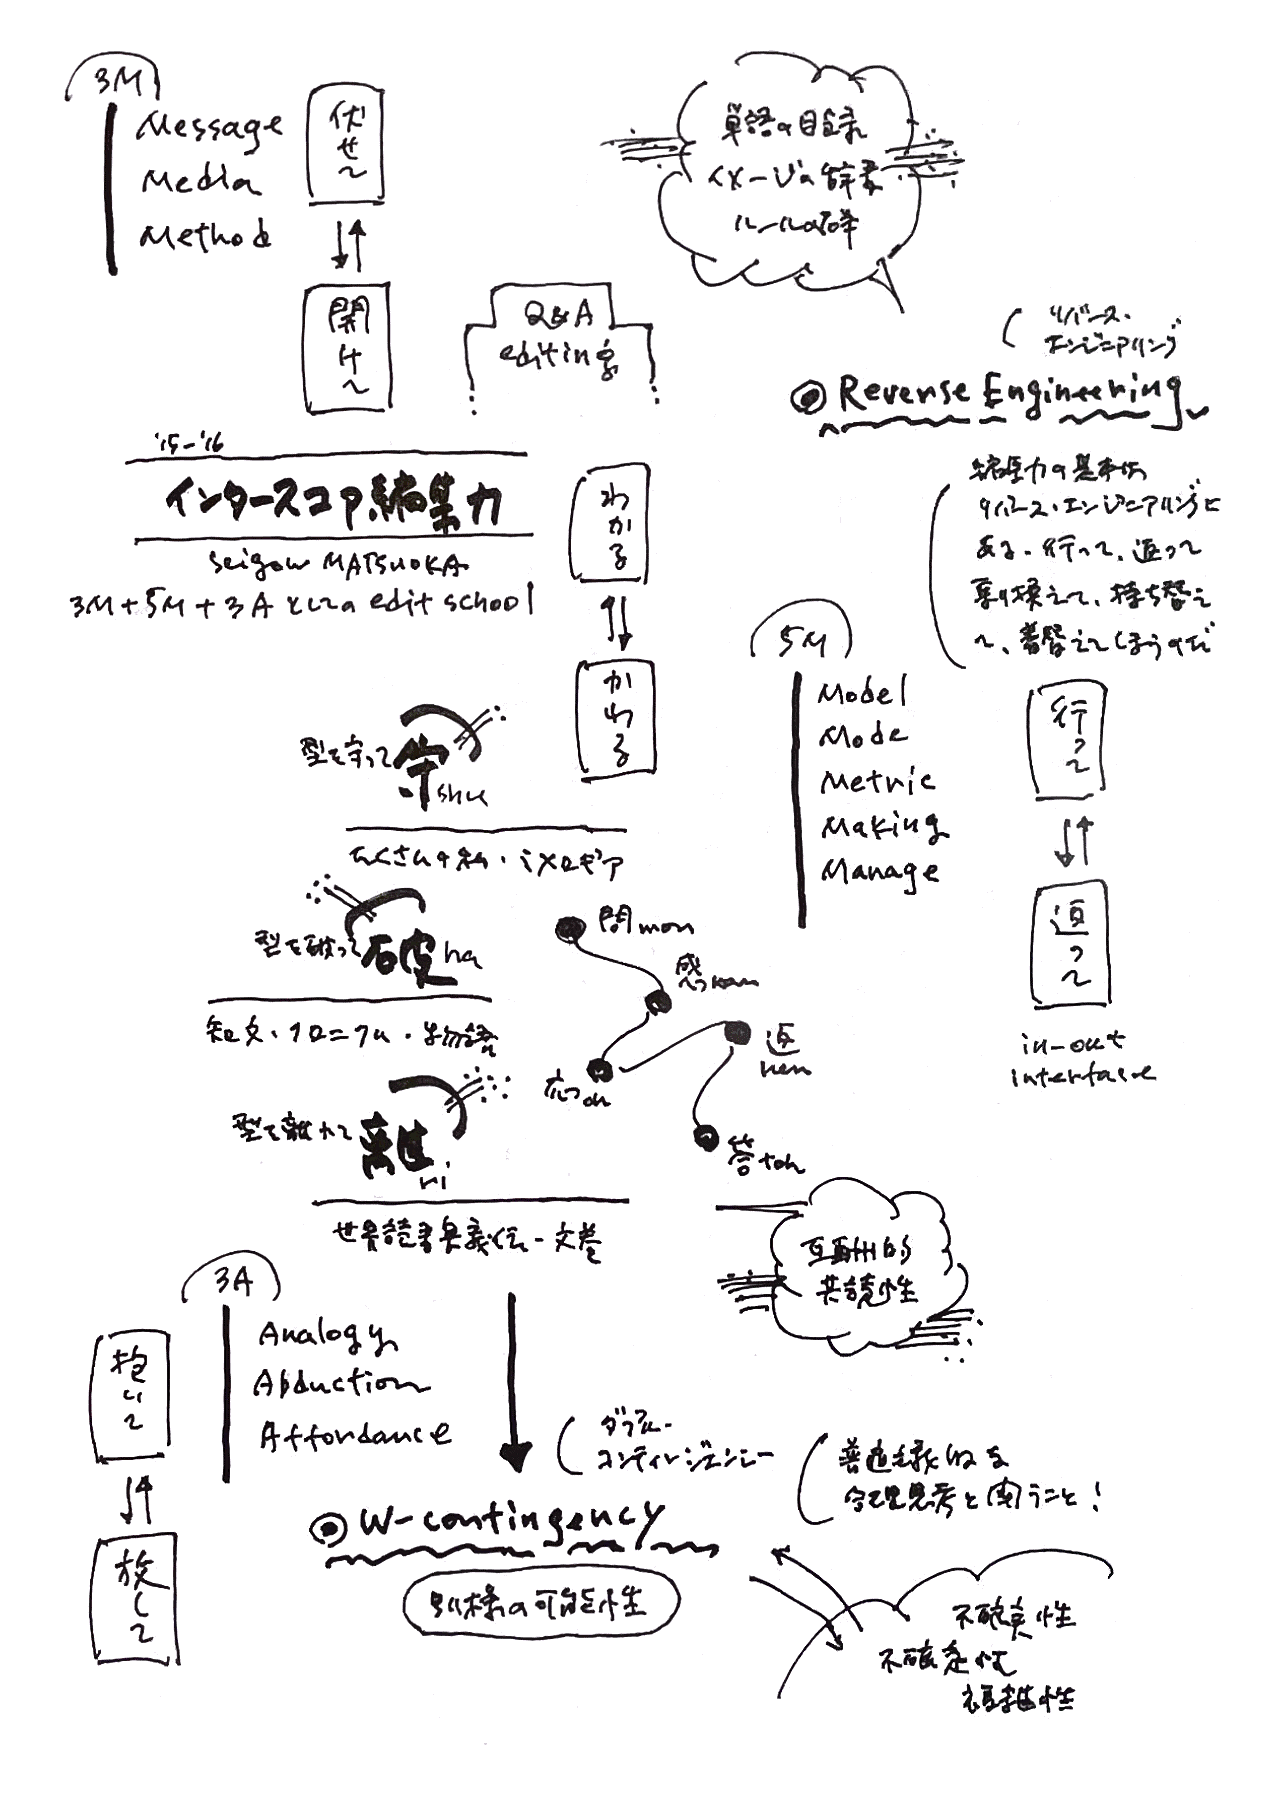 3M
Message
Media
Method
伏せて
開けて
単語の目録
イメージの辞書
ルールの群
Q&A
editing
リバース・
エンジニアリング
Reverse Engineering
'15-'16
インタースコア編集力
seigow MATSUOKA
3M+5M+3Aとしての edit school
わかる
かわる
編集力の基本は
リバース・エンジニアリングに
ある。行って、返って
乗り換えて、持ち替え
て、着替えてしまうのだ
5M
Model
Mode
Metric
Making
Manage
行って
返って
in-out
interface
型を守って 守 shu
たくさんの私・ミメロギア
型を破って 破 ha
知文・クロニクル・物語
型を離れて 離 ri
世界読書奥義伝・文巻
問 mon
感 kan
応 oh
返 hen
答 toh
互動的
共読性
3A
Analogy
Abduction
Affordance
抱いて
放して
ダブル・
コンティンジェンシー
W-contingency
別様の可能性
普遍主義的な
合理思考と闘うこと!
不確実性
不確定性
複雑性